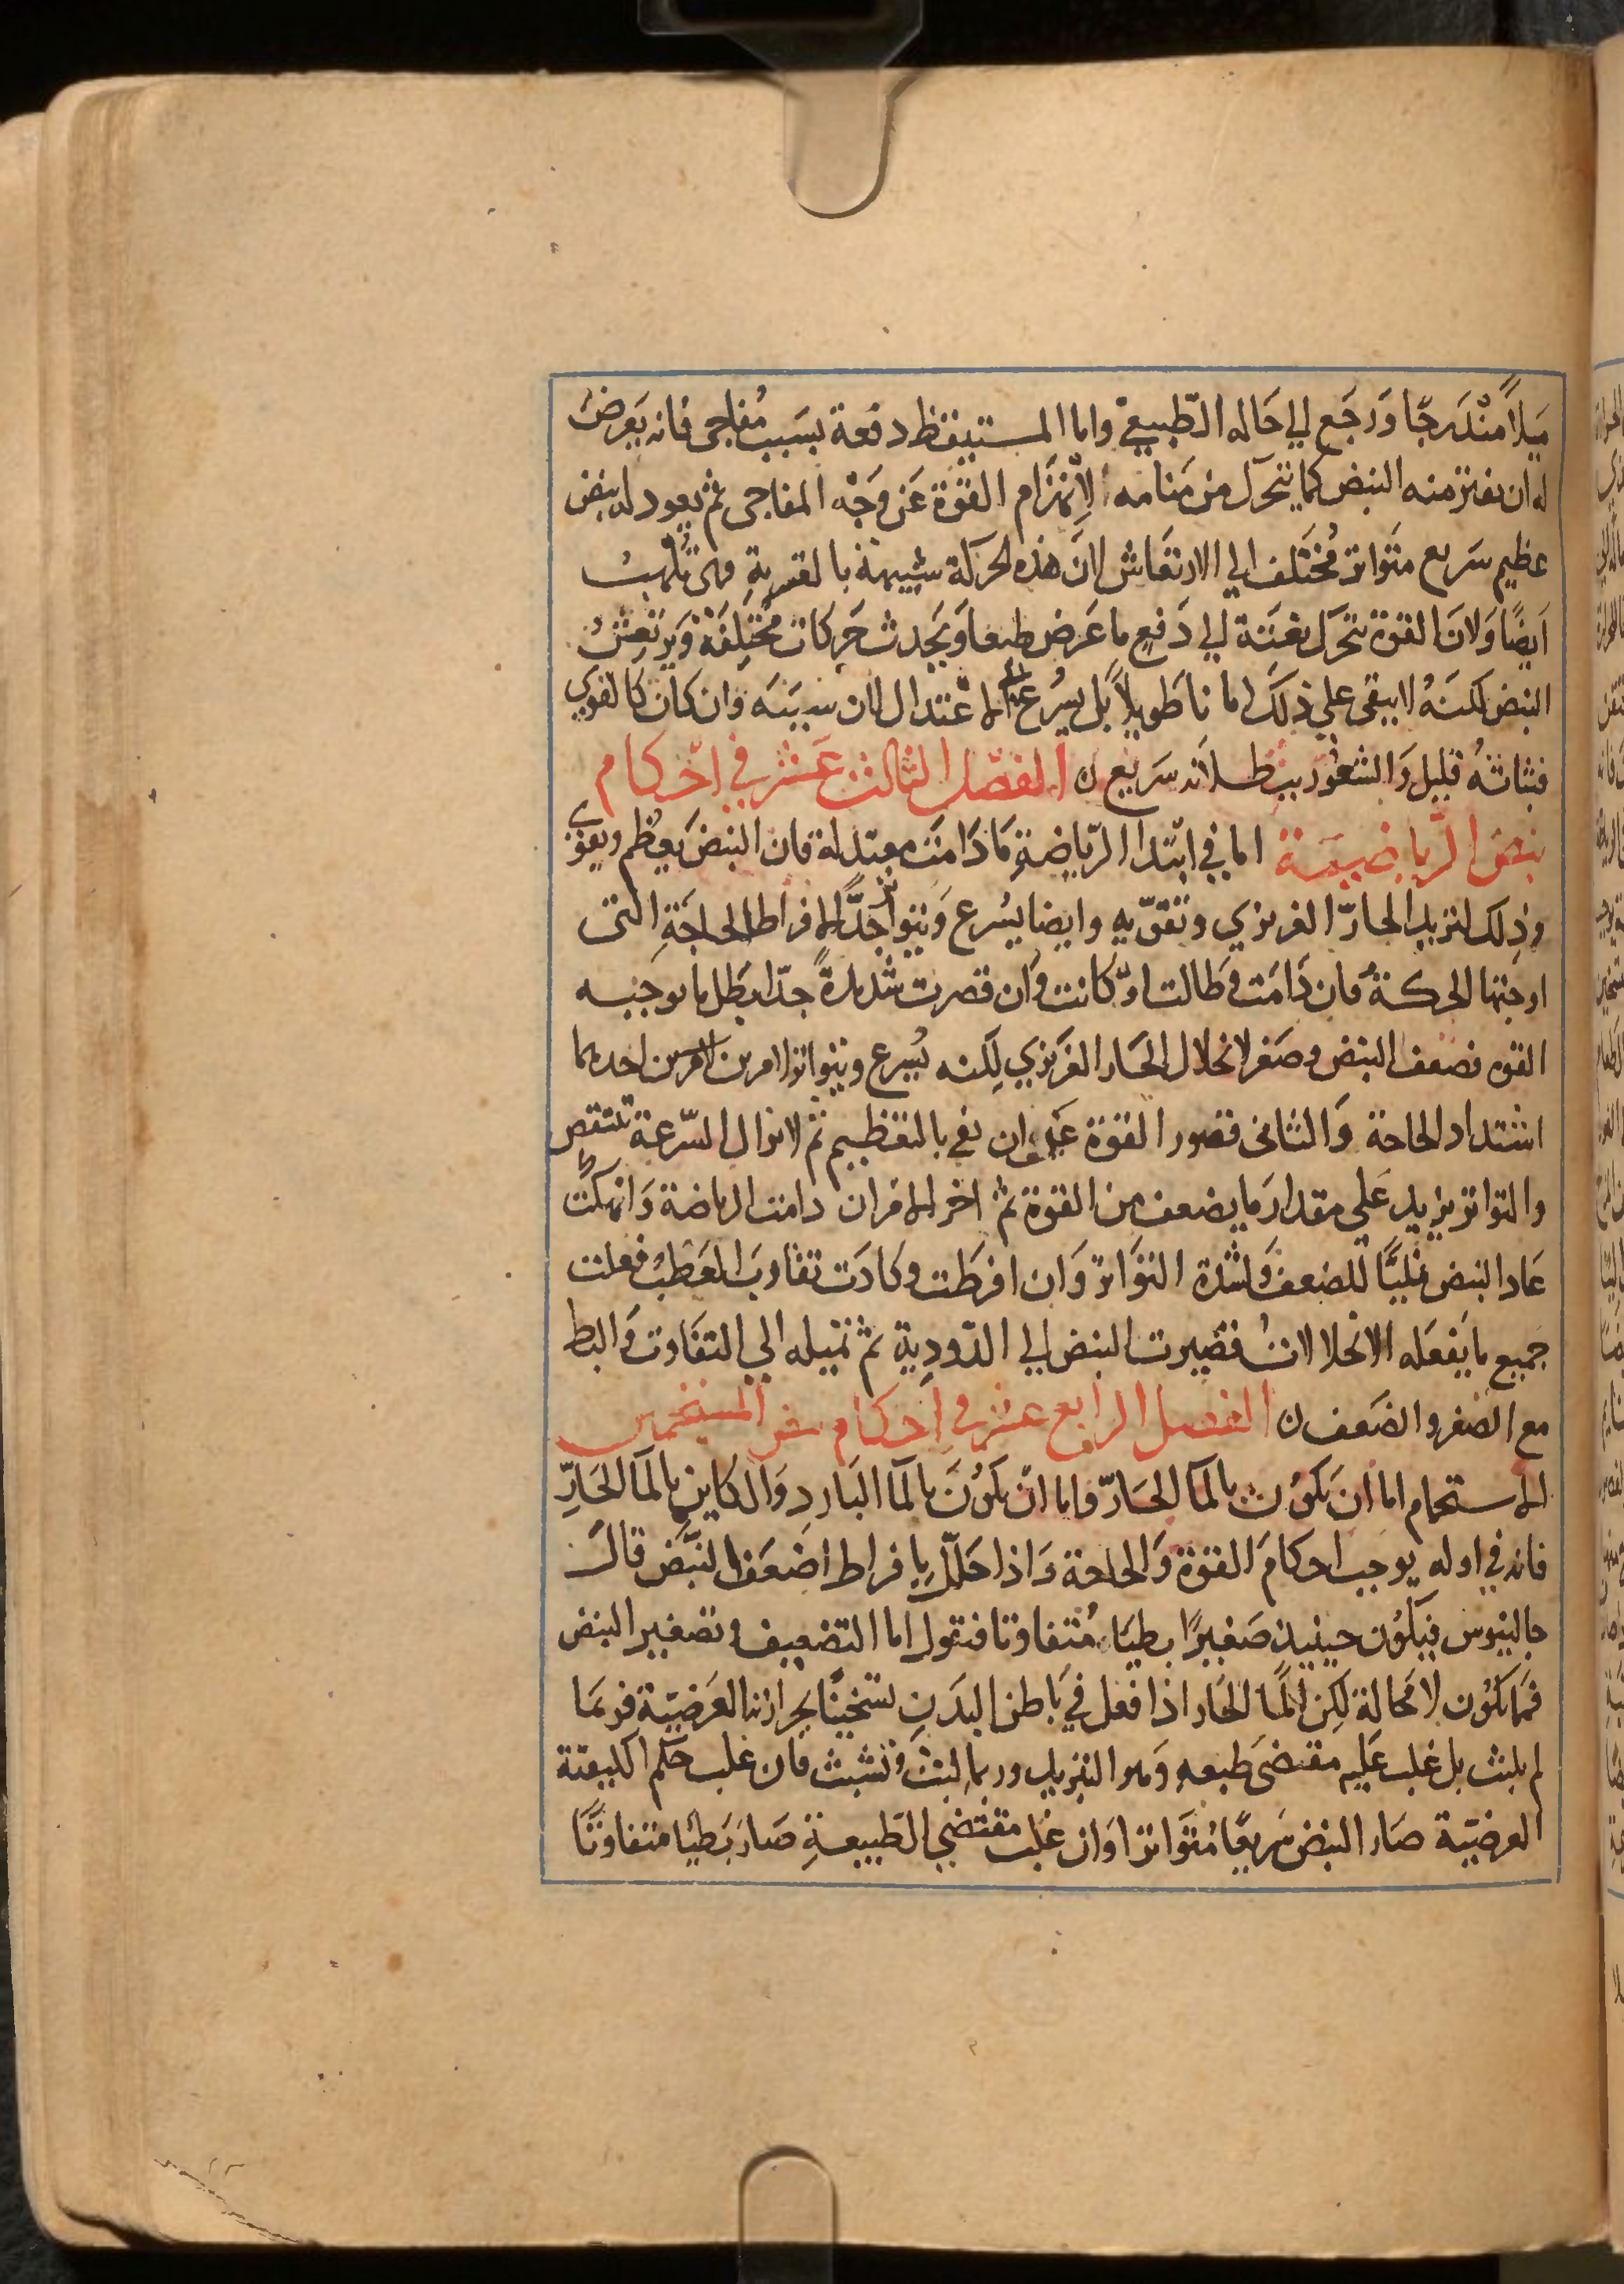 ميلاً متدرجًا ورجع الي حاله الطبيعي واما المستيقظ دفعة بسبب مفاجي فانه يعرض
له ان يفتر منه النبض كما يتحرك من منامه لانهزام القوة عن وجه المفاجي ثم يعود له نبض
عظيم سريع متواتر مختلف الي الارتعاش لان هذه الحركة شبيهة بالقسرية فهي تلهب
ايضًا ولان القوة تتحرك بغتة الي دفع ما عرض طبعا وتحدث حركات مختلفة ويرتعش
النبض لكنه لا يبقى علي ذلك زمانا طويلاً بل يسرع الى الاعتدال لان سببه وان كان كالقوي
فثباته قليل والشعور ببطلانه سريع ن الفصل الثالث عشر في احكام
نبض الرياضية اما في ابتدا الرياضة ما دامت معتدلة فان النبض يعظم ويقوى
وذلك لتزيد الحار الغريزي وتقويه وايضا يسرع ويتواتر جدًّا لافراط الحاجة التي
اوجبتها الحركة فان دامت وطالت او كانت وان قصرت شديدةً جدّا بطل ما توجبه
القوه فضعف النبض وصغر لانحلال الحار الغريزي لكنه يسرع ويتواتر لامرين احدهما
اشتداد الحاجة والثاني قصور القوة عن ان تفي بالتعظيم ثم لا تزال السرعة تنتقص
والتواتر يزيد علي مقدار ما يضعف من القوة ثم اخر الامر ان دامت الرياضة وانهكت
عاد النبض نمليًّا للضعف ولشدة التواتر وان افرطت وكادت تقارب العطب فعلت
جميع ما يفعله الانحلالات فتصيرت النبض الي الدودية ثم تميله الي التفاوت والبط
مع الصغر والضعف ن الفصل الرابع عشر في احكام نبض المستحمين
الاستحمام اما ان يكون بالمآ الحارّ واما ان يكون بالمآ البارد والكاين بالمآ الحارّ
فانه في اوله يوجب احكام القوة والحاجة واذا حلّل بافراط اضعف النبض قال
جالينوس فيكون حينيذ صغيرًا بطيًا متفاوتا فنقول اما التضعيف وتصغير النبض
فما يكون لا محالة لكن المآ الحار اذا فعل في باطن البدن تسخينًا بحرارته العرضيّة فربما
لم يلبث بل غلب عليه مقتضى طبعه وهو التبريد وربما لبث وتشبث فان غلب حكم الكيفية
العرضيّة صار النبض سريعًا متواترا وان غلب مقتضي الطبيعة صار بطيًا متفاوتًا